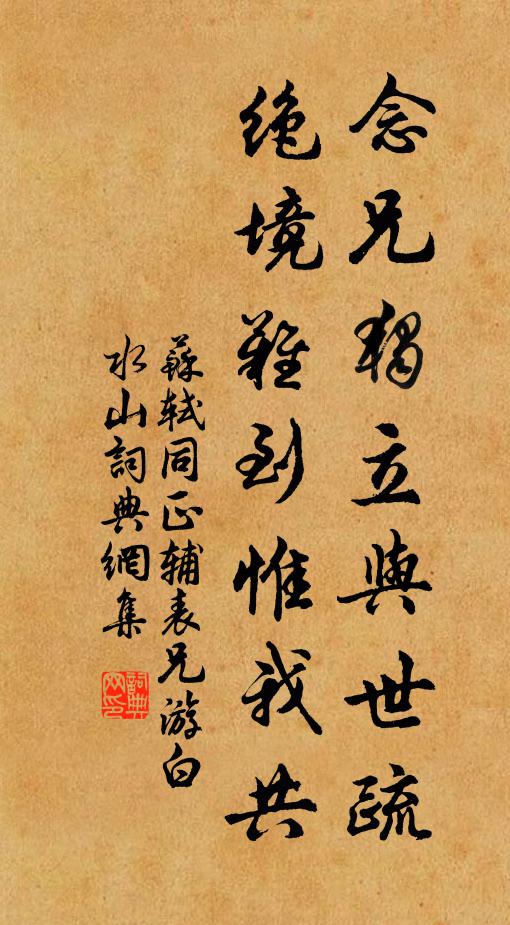 念兄獨立與世疏
絶境難到惟我共
蘇軾同正輔表兄游白
水山詞典網集
詞典網印